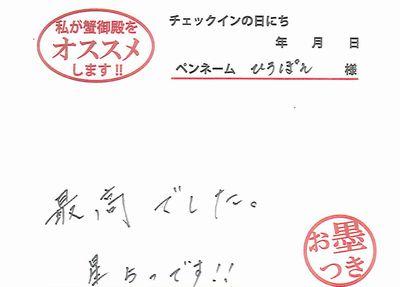 私が蟹御殿を
オススメ
します!!
チェックインの日にち
年 月 日
ペンネーム ひろぽん 様
最高でした。
星5つです!!
お墨
つき